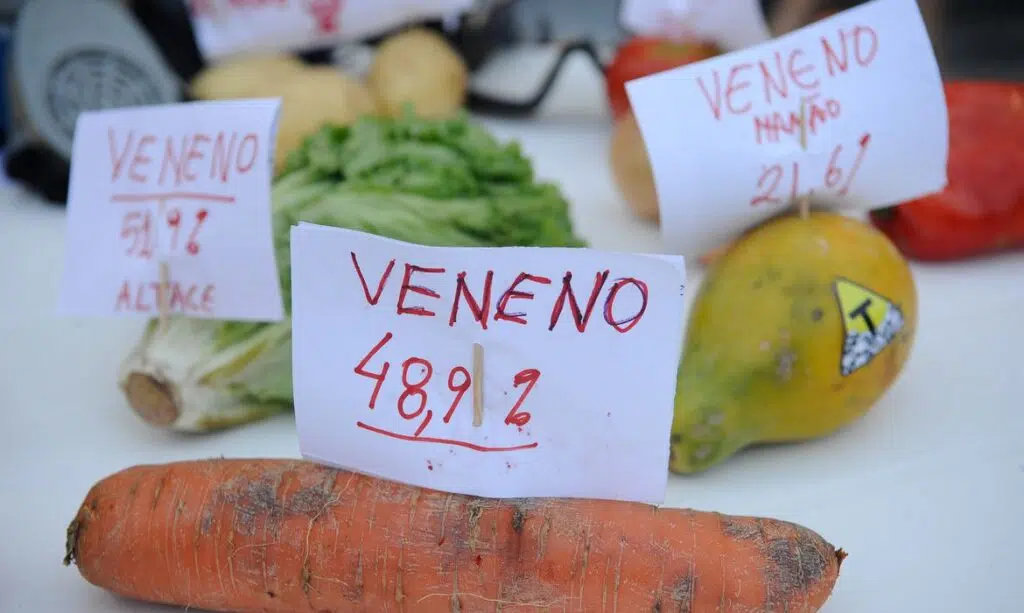 VENENO
51,9%
ALTACE
VENENO
48,9%
VENENO
MAMÃO
21,6%
T